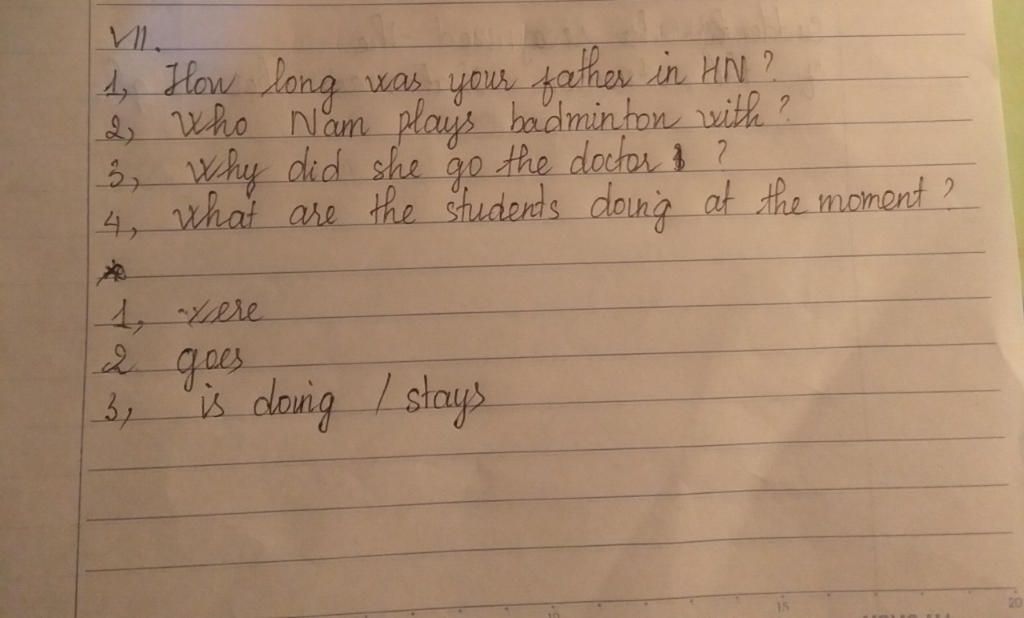 VII.
1, How long was your father in HN ?
2, Who Nam plays badminton with ?
3, Why did she go the doctor ?
4, What are the students doing at the moment ?
1, were
2 goes
3, is doing / stays
10 15 20